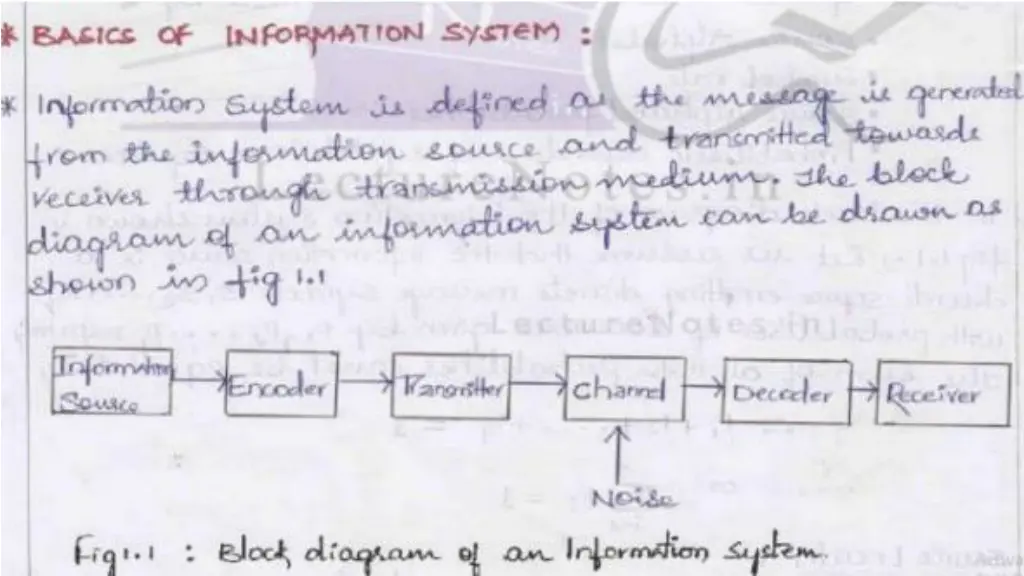 * BASICS OF INFORMATION SYSTEM :
* Information System is defined as the message is generated
from the information source and transmitted towards
receiver through transmission medium. The block
diagram of an information system can be drawn as
shown in fig 1.1
LectureNotes.in
LectureNotes.in
Information Source
Encoder
Transmitter
Channel
Decoder
Receiver
Noise
Fig 1.1 : Block diagram of an Information system